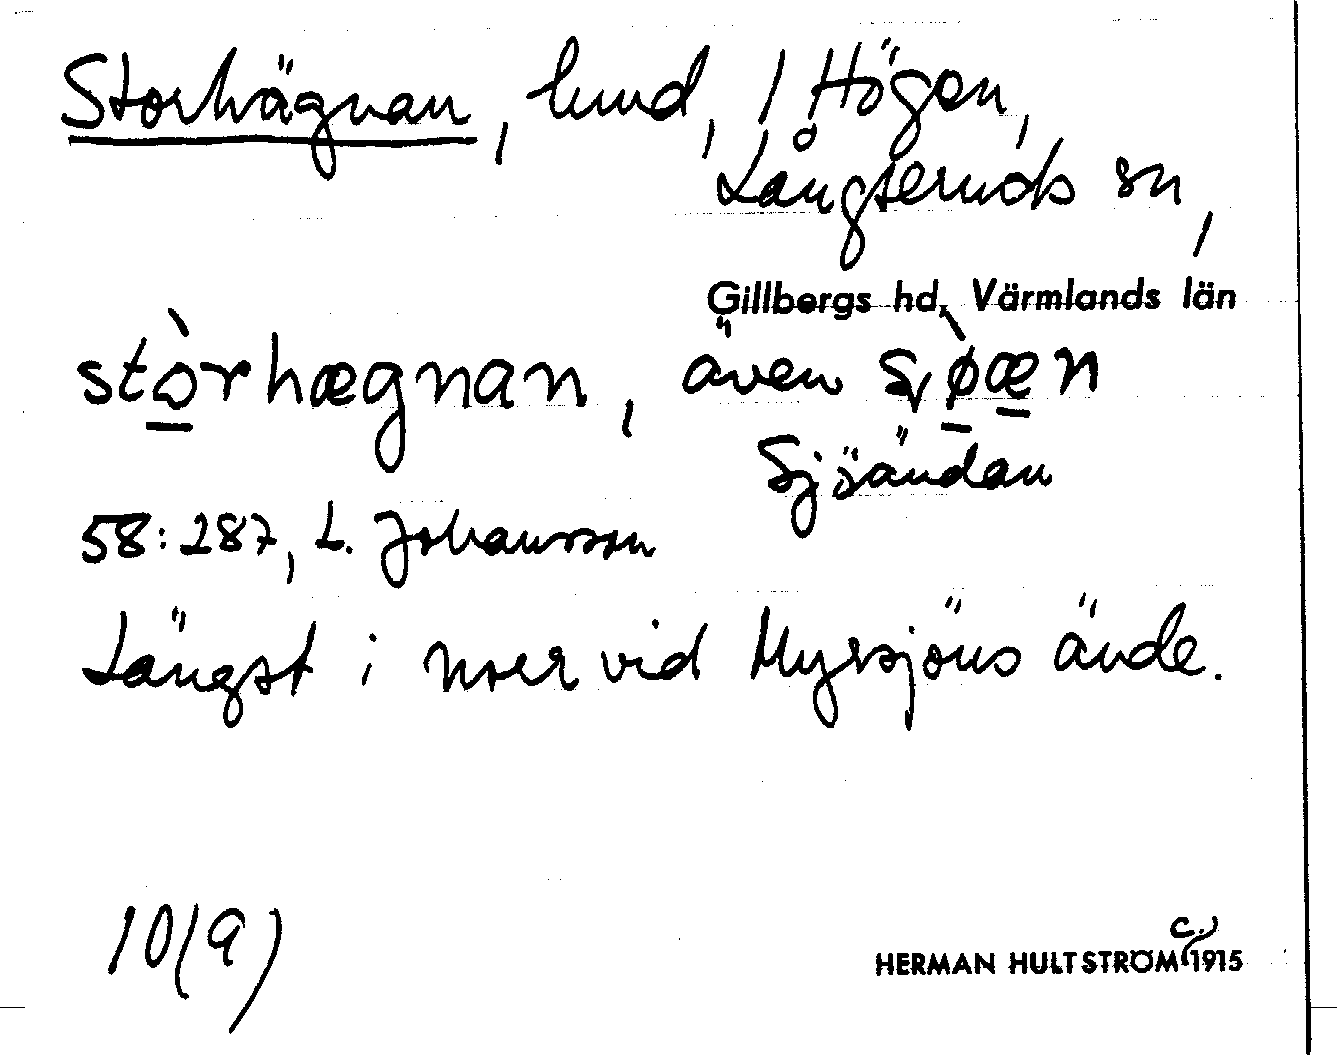 Storhägnan, lund, / Högen,
Långseruds sn,
Gillbergs hd, Värmlands län
stòrhægnan, även sjòæn
Sjöändan
58:287, L. Johansson
Längst i norr vid Myrsjöns ände.
10(9)
HERMAN HULTSTRÖM (c.) 1915